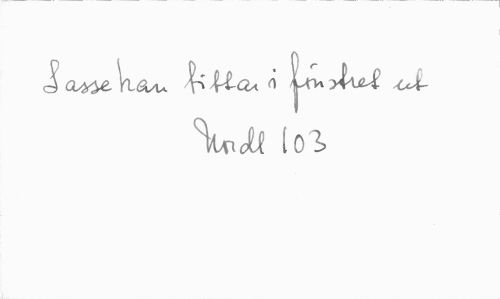 Lasse han tittar i fönstret ut
Nordl 103